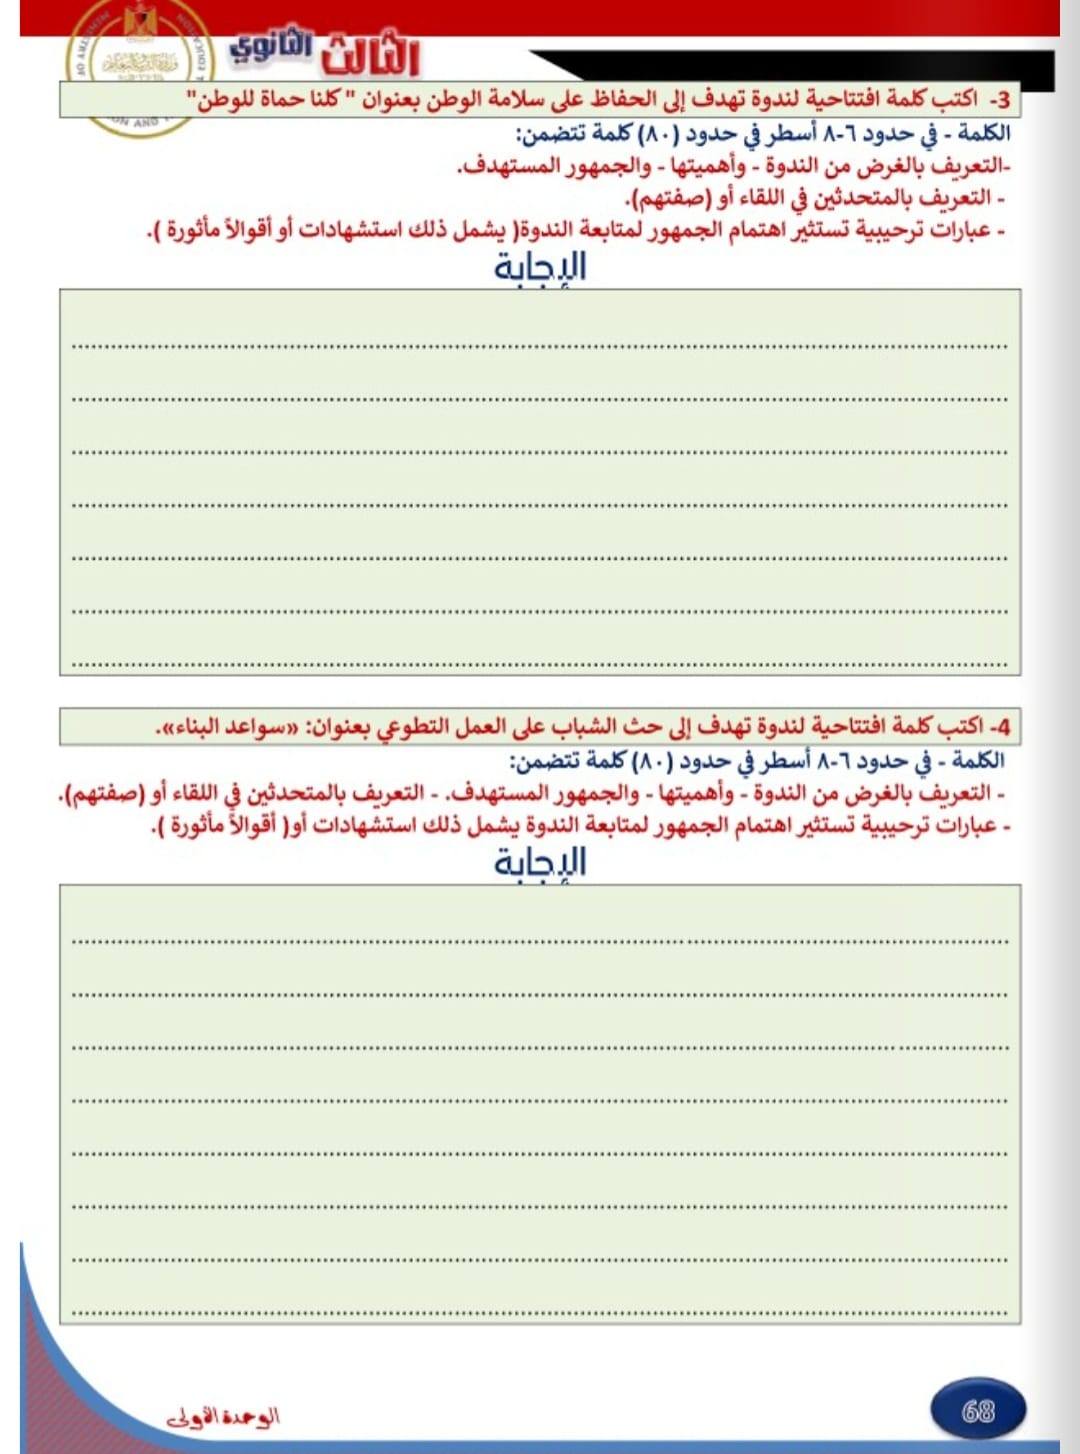 الثالث الثانوي
3- اكتب كلمة افتتاحية لندوة تهدف إلى الحفاظ على سلامة الوطن بعنوان " كلنا حماة للوطن"
الكلمة - في حدود ٦-٨ أسطر في حدود (٨٠) كلمة تتضمن:
-التعريف بالغرض من الندوة - وأهميتها - والجمهور المستهدف.
- التعريف بالمتحدثين في اللقاء أو (صفتهم).
- عبارات ترحيبية تستثير اهتمام الجمهور لمتابعة الندوة( يشمل ذلك استشهادات أو أقوالاً مأثورة ).
الإجابة
4- اكتب كلمة افتتاحية لندوة تهدف إلى حث الشباب على العمل التطوعي بعنوان: «سواعد البناء».
الكلمة - في حدود ٦-٨ أسطر في حدود (٨٠) كلمة تتضمن:
- التعريف بالغرض من الندوة - وأهميتها - والجمهور المستهدف. - التعريف بالمتحدثين في اللقاء أو (صفتهم).
- عبارات ترحيبية تستثير اهتمام الجمهور لمتابعة الندوة يشمل ذلك استشهادات أو( أقوالاً مأثورة ).
الإجابة
الوحدة الأولى
68